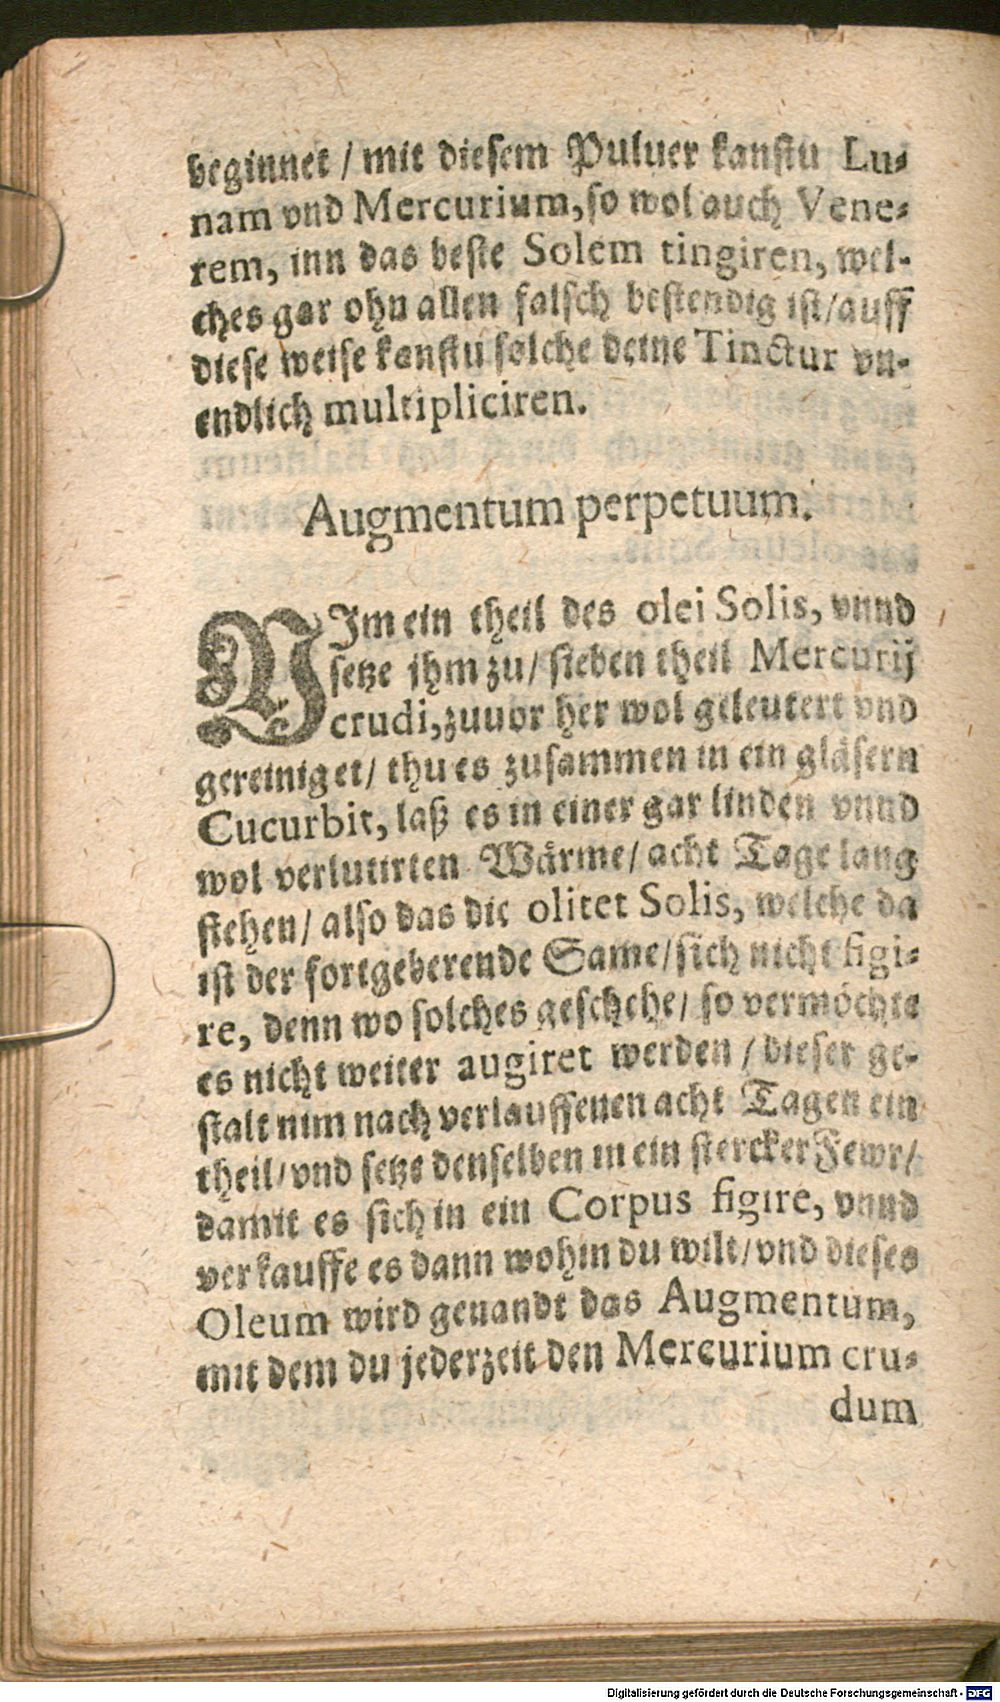 beginnet / mit diesem Puluer kanstu Lu-
nam vnd Mercurium, so wol auch Vene-
rem, inn das beste Solem tingiren, wel-
ches gar ohn allen falsch bestendig ist/auff
diese weise kanstu solche deine Tinctur vn-
endlich multipliciren.
Augmentum perpetuum.
NIm ein theil des olei Solis, vnnd
setze jhm zu/ sieben theil Mercurij
crudi, zuuor her wol geleutert vnd
gereiniget/ thu es zusammen in ein gläsern
Cucurbit, laß es in einer gar linden vnnd
wol verlutirten Wärme/ acht Tage lang
stehen/ also das die olitet Solis, welche da
ist der fortgeberende Same/sich nicht figi-
re, denn wo solches geschehe/ so vermöchte
es nicht weiter augiret werden / dieser ge-
stalt nim nach verlauffenen acht Tagen ein
theil/ vnd setze denselben in ein stercker Fewr/
damit es sich in ein Corpus figire, vnnd
verkauffe es dann wohin du wilt/ vnd dieses
Oleum wird genandt das Augmentum,
mit dem du jederzeit den Mercurium cru-
dum
Digitalisierung gefördert durch die Deutsche Forschungsgemeinschaft - DFG